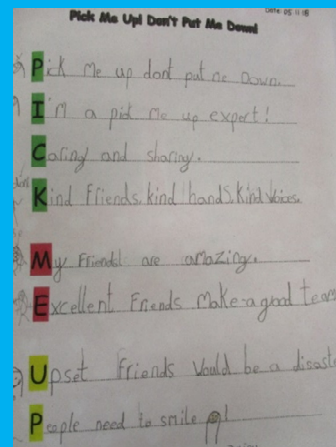 Date: 05.11.18
Pick Me Up! Don't Put Me Down!
Pick me up dont put me Down.
I'm a pick me up expert!
Caring and sharing.
Kind Friends, kind hands, kind voices.
My Friends are amazing.
Excellent Friends make a good team
Upset Friends would be a disaste
People need to smile!